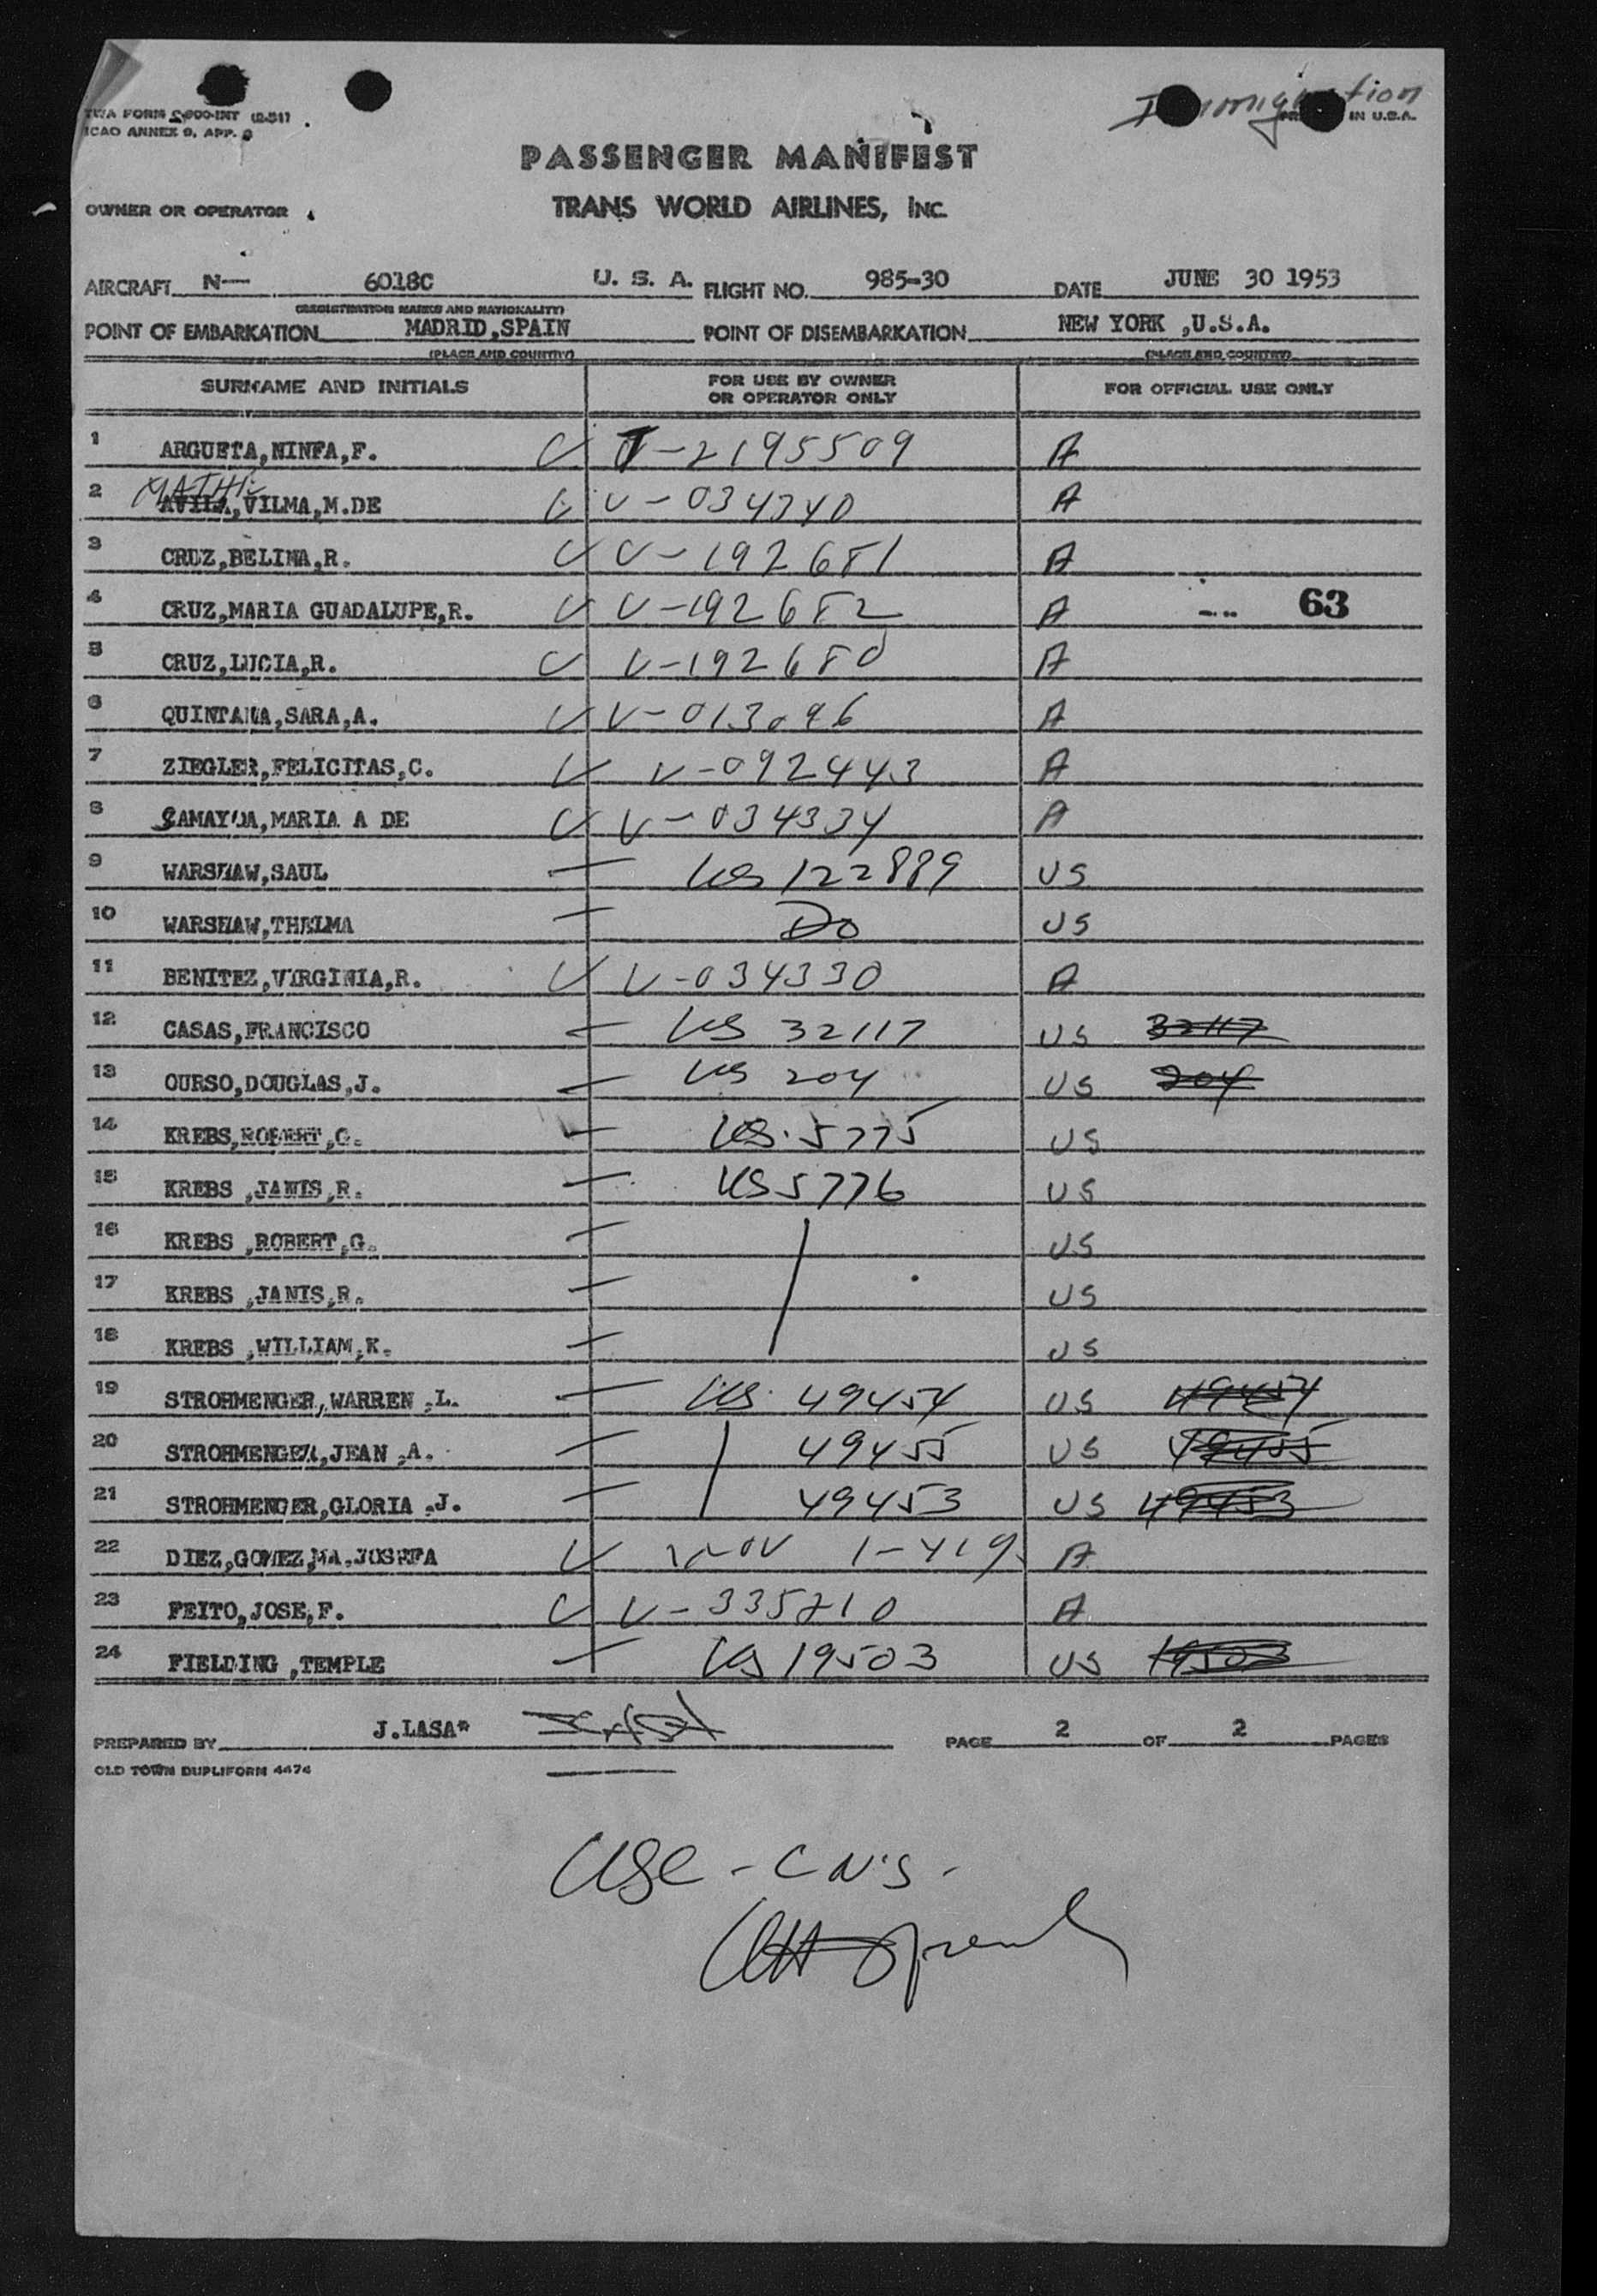 TWA FORM INT (2-51)
ICAO ANNEX 9, APP.
Immigration
IN U.S.A.
PASSENGER MANIFEST
OWNER OR OPERATOR TRANS WORLD AIRLINES, INC.
AIRCRAFT N— 6018C U. S. A. FLIGHT NO. 985-30 DATE JUNE 30 1953
(REGISTRATION MARKS AND NATIONALITY)
POINT OF EMBARKATION MADRID,SPAIN POINT OF DISEMBARKATION NEW YORK ,U.S.A.
(PLACE AND COUNTRY) (PLACE AND COUNTRY)
SURNAME AND INITIALS FOR USE BY OWNER OR OPERATOR ONLY FOR OFFICIAL USE ONLY
1 ARGUETA,NINFA,F. T-2195509 A
2 AVILA,VILMA,M.DE V-034340 A
3 CRUZ,BELINA,R. V-192681 A
4 CRUZ,MARIA GUADALUPE,R. V-192682 A 63
5 CRUZ,LUCIA,R. V-192680 A
6 QUINTANA,SARA,A. V-013096 A
7 ZIEGLER,FELICITAS,C. V-092443 A
8 SAMAYOA,MARIA A DE V-034334 A
9 WARSHAW,SAUL US 122889 US
10 WARSHAW,THELMA Do US
11 BENITEZ,VIRGINIA,R. V-034330 A
12 CASAS,FRANCISCO US 32117 US 32117
13 OURSO,DOUGLAS,J. US 204 US 204
14 KREBS,ROBERT,G. US 5775 US
15 KREBS ,JANIS,R. US 5776 US
16 KREBS ,ROBERT,G. US
17 KREBS ,JANIS,R. US
18 KREBS ,WILLIAM,K. US
19 STROHMENGER,WARREN ,L. US 49454 US 49454
20 STROHMENGER,JEAN ,A. 49455 US 49455
21 STROHMENGER,GLORIA ,J. 49453 US 49453
22 DIEZ,GOMEZ,MA.JOSEFA 1-419 A
23 FEITO,JOSE,F. V-335210 A
24 FIELDING ,TEMPLE US 19503 US 19503
PREPARED BY J.LASA* PAGE 2 OF 2 PAGES
OLD TOWN DUPLIFORM 4474
USC - CNS -